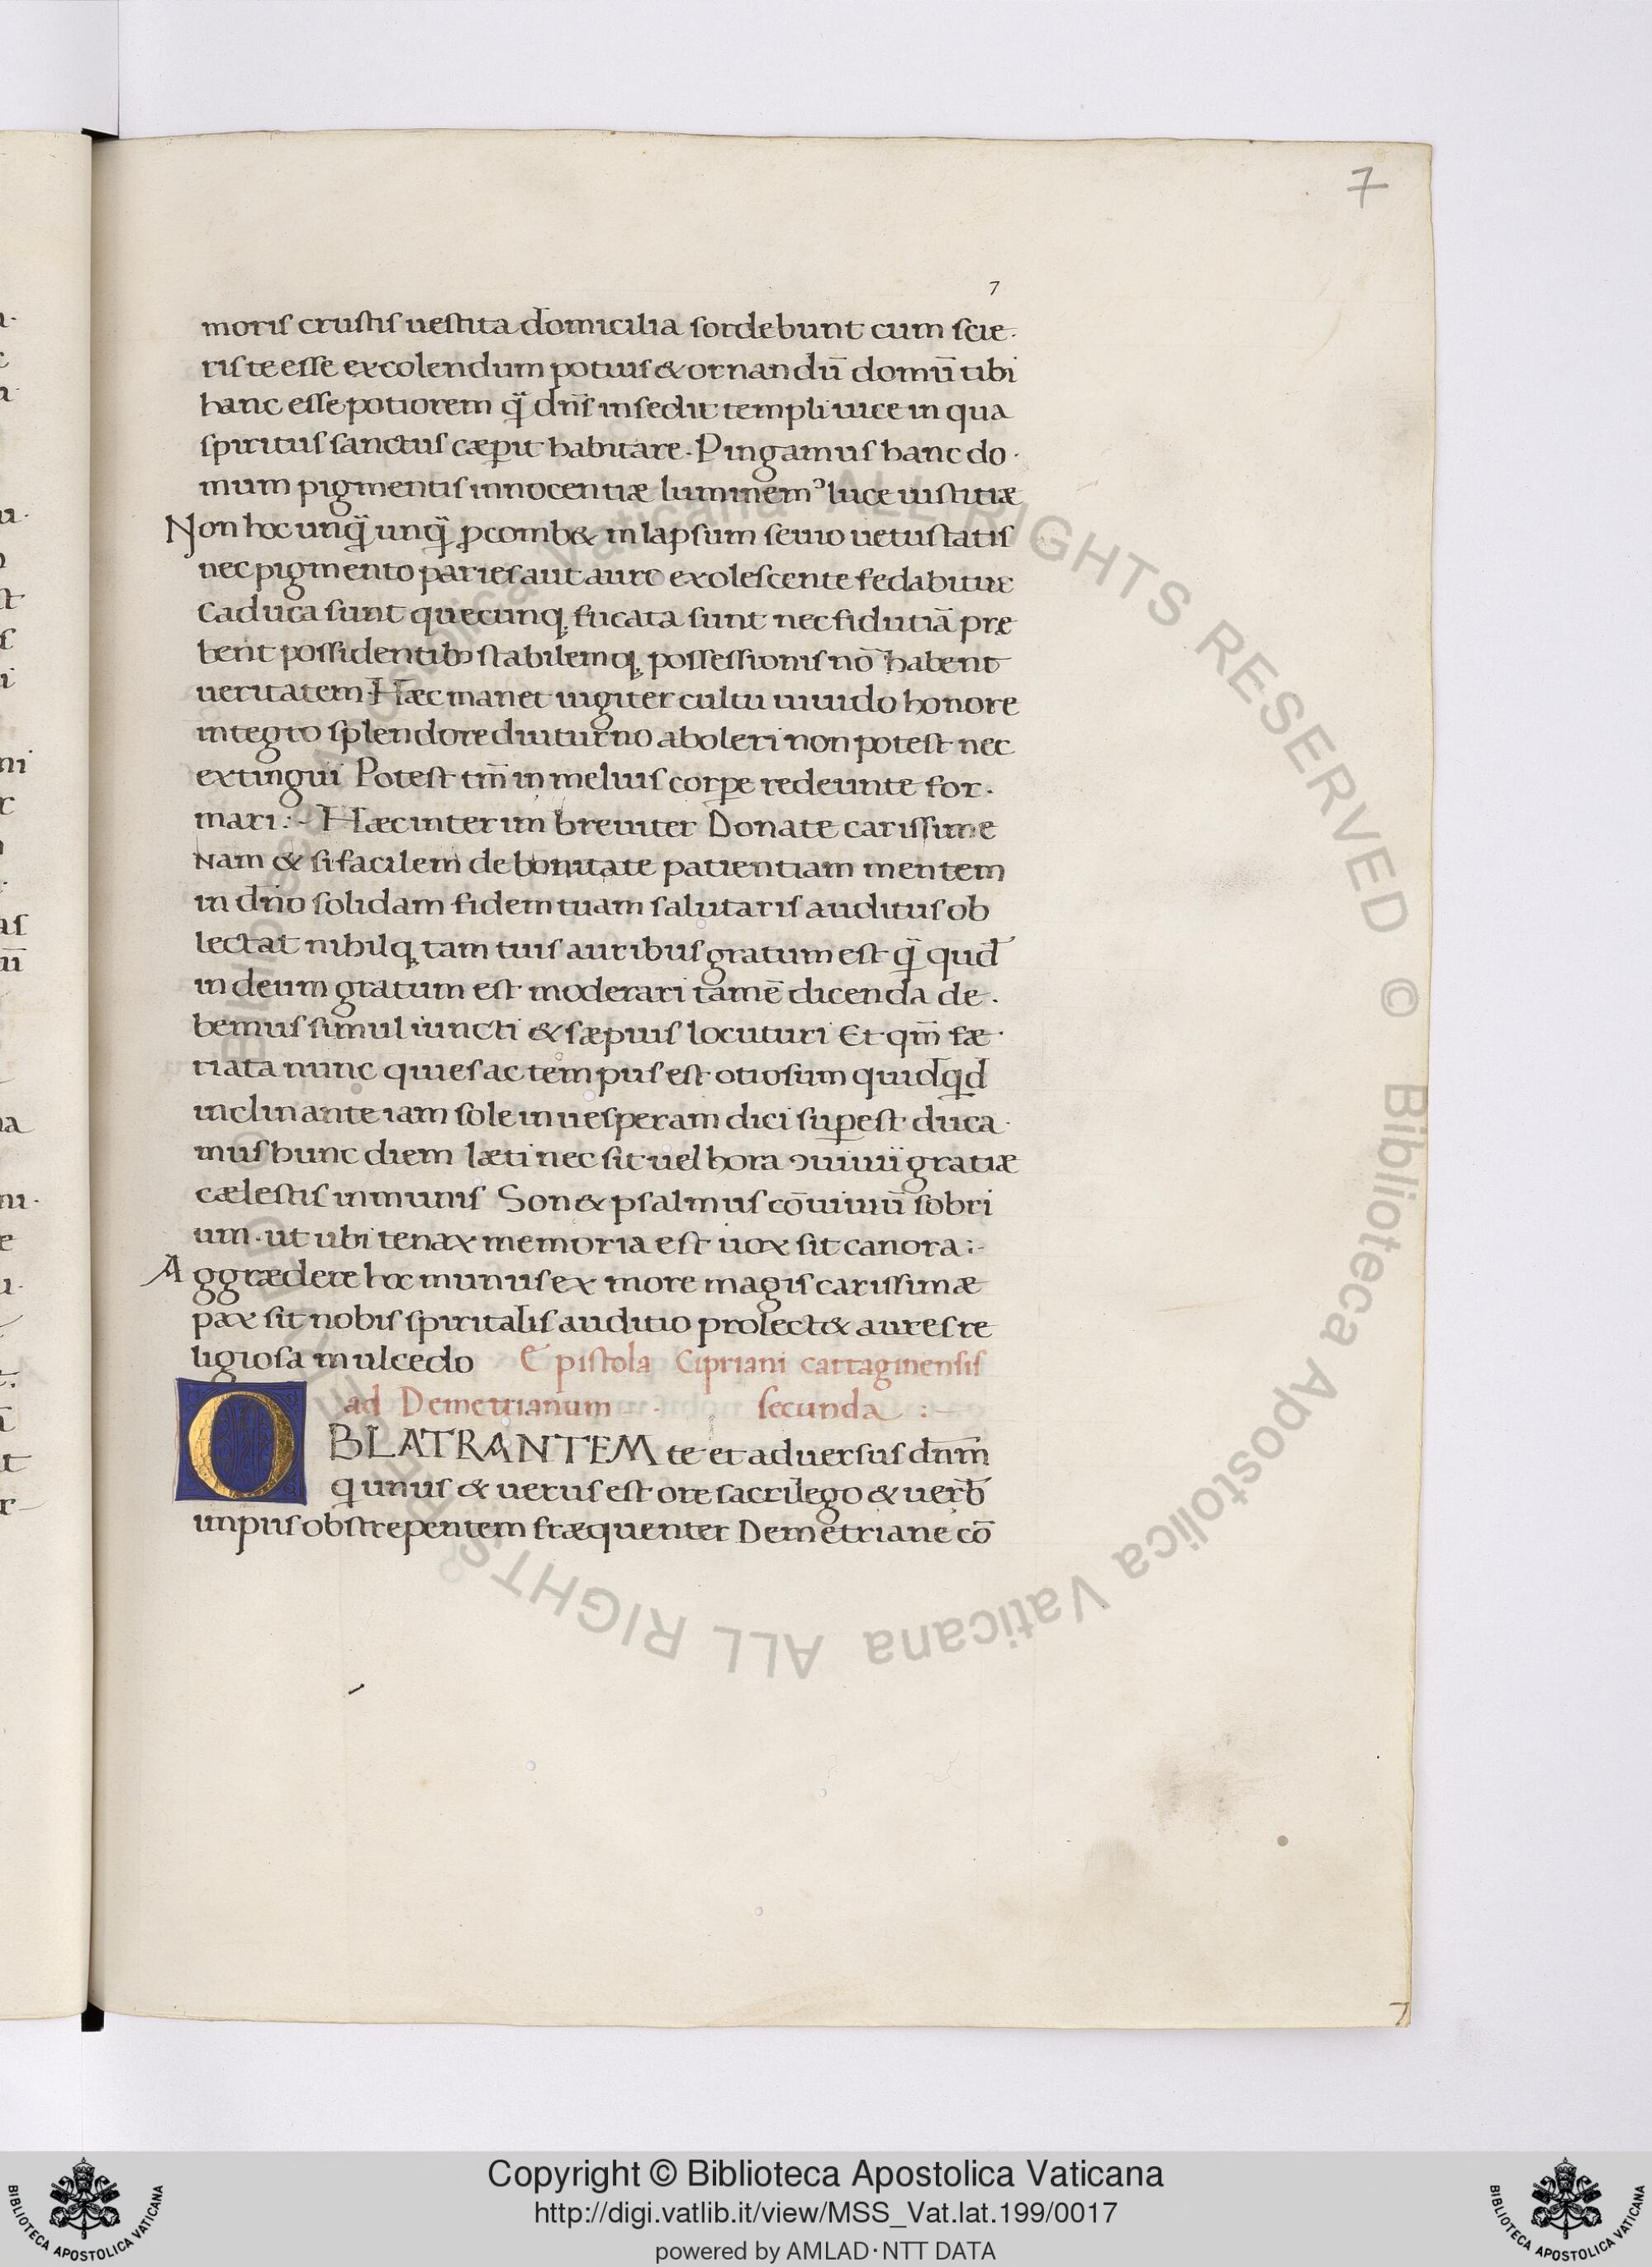 7
7
moris crustis uestita domicilia sordebunt cum scie·
ris te esse excolendum potius & ornandū domū tibi
hanc esse potiorem q̄ dn̄s insedit templi uice in qua
spiritus sanctus cæpit habitare. Pingamus hanc do·
mum pigmentis innocentiæ luminemꝰ luce iustitiæ
Non hoc unq̄ unq̄ ꝓcomb& in lapsum senio uetustatis
nec pigmento paries aut auro exolescente fedabitur
caduca sunt quecunq; fucata sunt nec fidutiā pre
bent possidentib; stabilem q; possessionis nō habent
ueritatem Hæc manet iugiter cultu uiuido honore
integro splendore diuturno aboleri non potest nec
extingui Potest tm̄ in melius corꝑe redeunte for·
mari:- Hæc interim breuiter Donate carissime
Nam & si facilem de bonitate patientiam mentem
in dn̄o solidam fidem tuam salutaris auditus ob
lectat nihilq; tam tuis auribus gratum est q̄ quod
in deum gratum est moderari tamē dicenda de·
bemus simul iuncti & sæpius locuturi Et qm̄ fæ·
riata nunc quies ac tempus est otiosum quidq̄d
inclinante iam sole in uesperam dici suꝑest duca·
mus hunc diem læti nec sit uel hora ꝯuiuii gratiæ
cælestis inmunis Son& psalmus cōuiuiū sobri
um· ut ubi tenax memoria est uox sit canora:-
Aggrædere hoc munus ex more magis carissimæ
pax sit nobis spiritalis auditio prolect& aures re
ligiosa mulcedo Epistola Cipriani cartaginensis
ad Demetrianum secunda :-
OBLATRANTEM te et aduersus dn̄m
qi unus & uerus est ore sacrilego & uerb̄
impiis obstrepentem fræquenter Demetriane cō
7
ALL RIGHTS RESERVED © Biblioteca Apostolica Vaticana
Copyright © Biblioteca Apostolica Vaticana
http://digi.vatlib.it/view/MSS_Vat.lat.199/0017
powered by AMLAD·NTT DATA
BIBLIOTECA APOSTOLICA VATICANA
BIBLIOTECA APOSTOLICA VATICANA